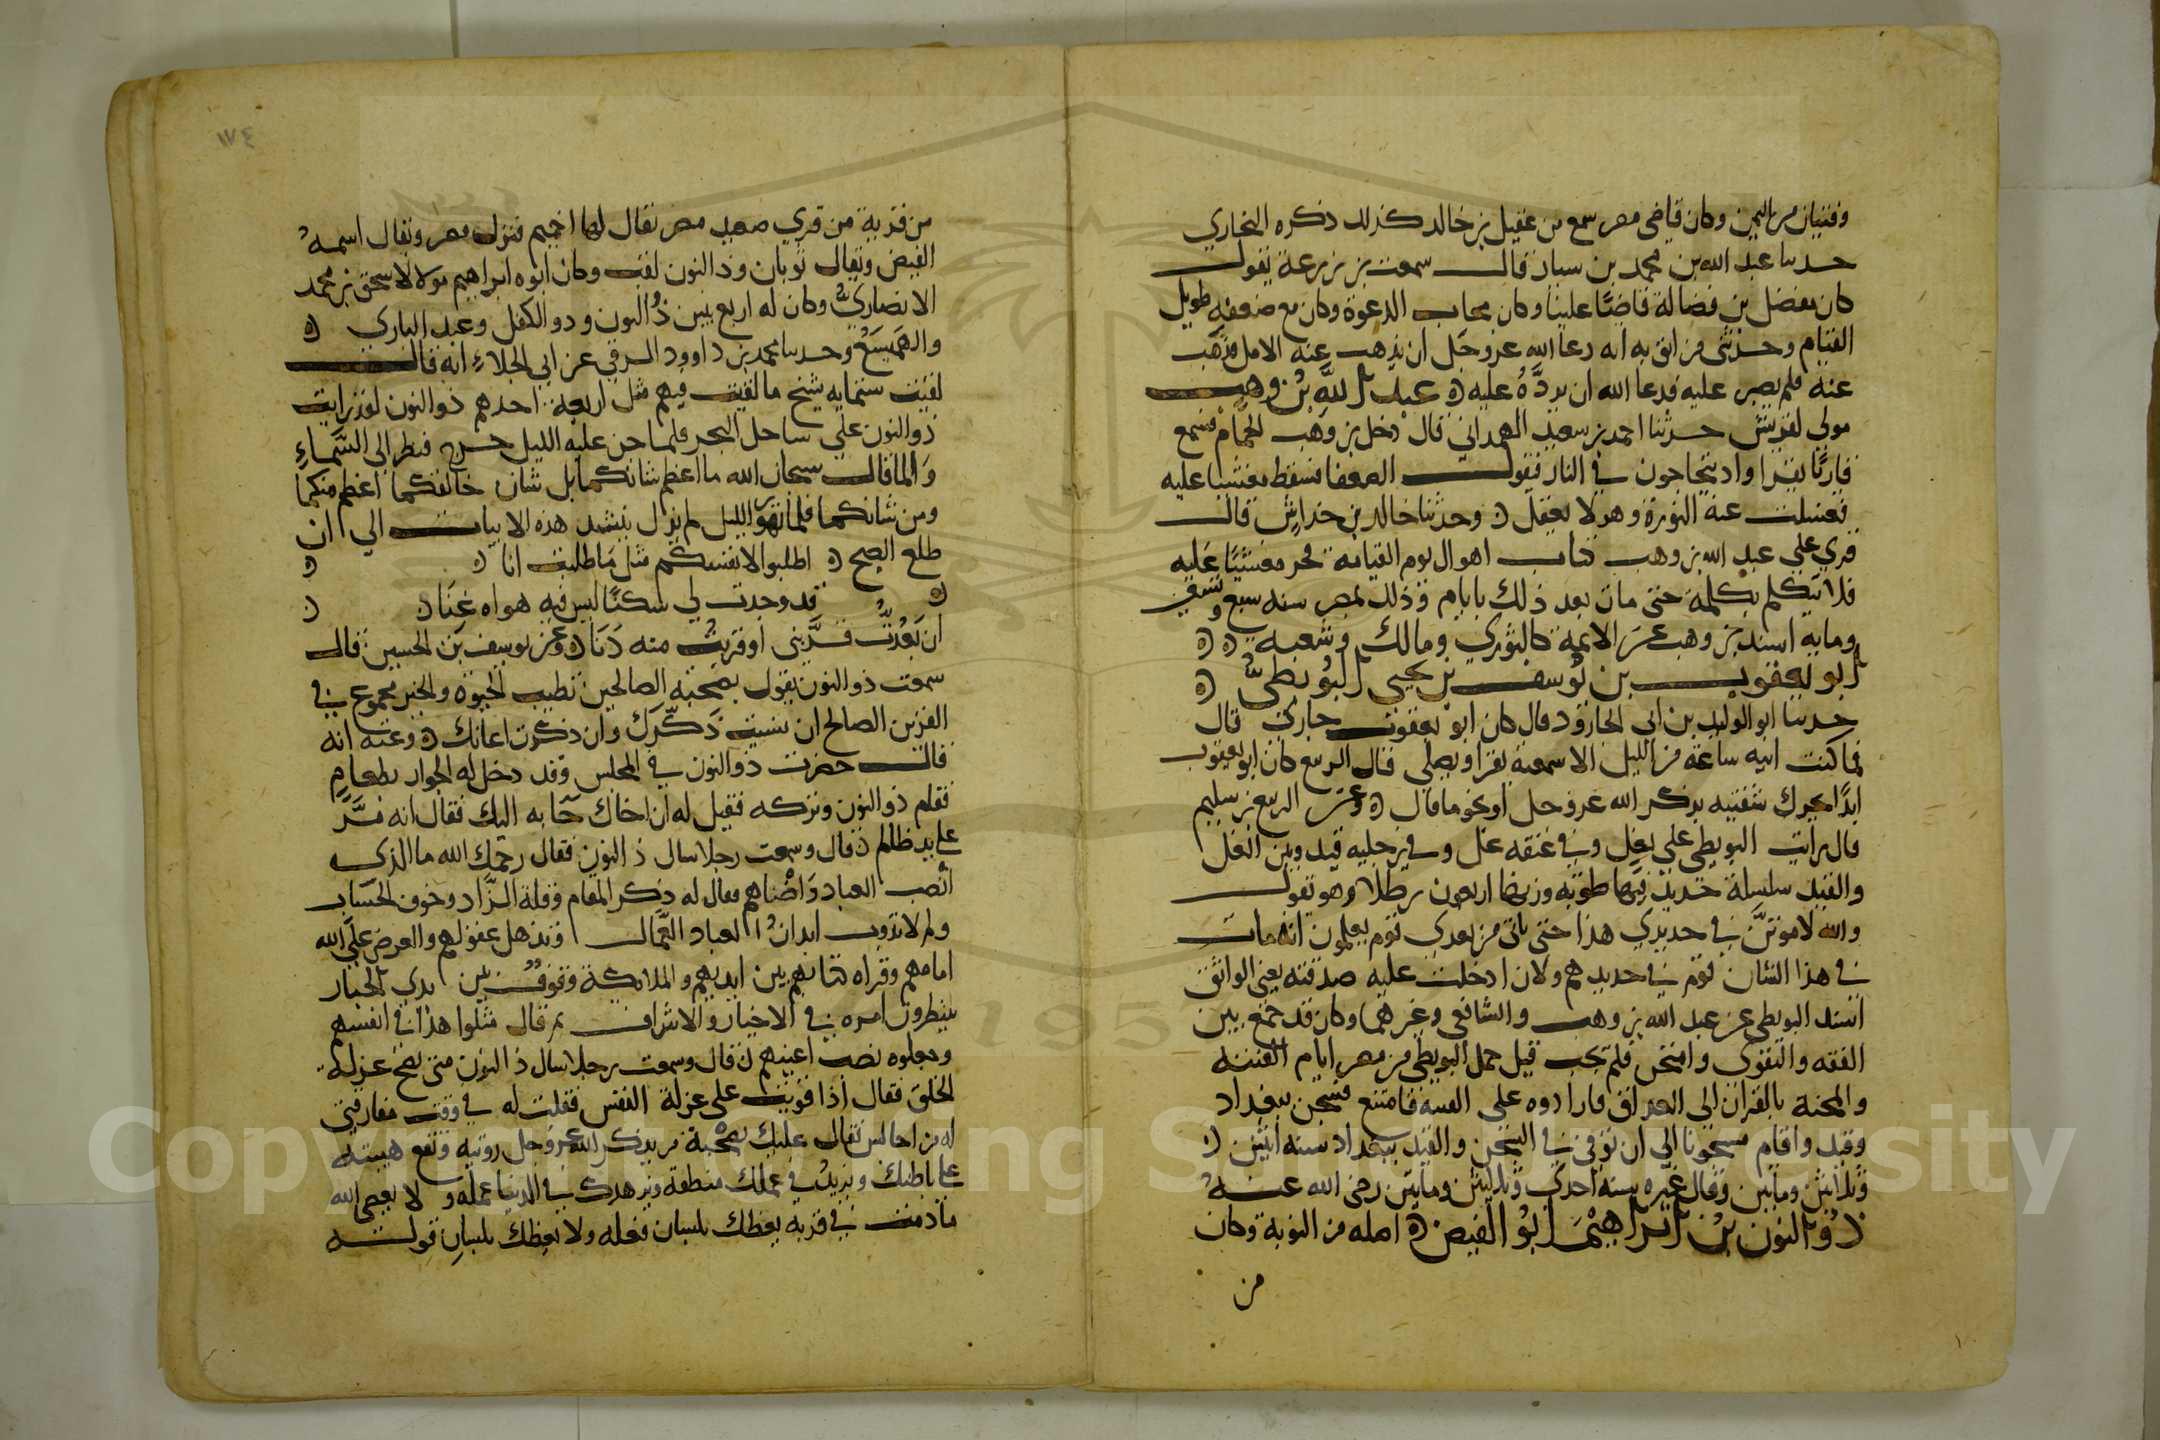 وقتبان من اليمن وكان قاضي مصر سمع من عقيل بن خالد كذلك ذكره البخاري
حدثنا عبد الله بن محمد بن سيار قال سمعت بن زرعة يقول
كان مفضل بن فضالة قاضيًا علينا وكان مجاب الدعوة وكان مع ضعفه طويل
القيام وحدثني من اثق به انه دعا الله عز وجل ان يذهب عنه الامل فذهب
عنه فلم يصبر عليه فدعا الله ان يردَّهُ عليه عبد اللَّه بن وهب
مولي لقريش حدثنا احمد بن سعيد الهمداني قال دخل بن وهب الحمام فسمع
قاريًا يقرا واذ يتحاجون في النار فيقول الضعفا فسقط مغشيا عليه
فغسلت عنه النورة وهو لا يعقل وحدثنا خالد بن خداش قال
قري علي عبد الله بن وهب كتاب اهوال يوم القيامة فخر مغشيًا عليه
فلا تيكلم بكلمة حتى مات بعد ذلك بايام وذلك بمصر سنه سبع وتسعين
ومايه اسند بن وهب عن الايمة كالثوري ومالك وشعبه
ابو يعقوب بن يوسف بن يحيى البويطيُّ
حدثنا ابو الوليد بن ابي الجارود قال كان ابو يعقوب جاري قال
فما كنت انبه ساعة من الليل الا سمعته يقرا ويصلي قال الربيع كان ابو يعقوب
ابدًا يحرك شفتيه بذكر الله عز وجل او نحو ما قال وعن الربيع بن سليم
قال رايت البويطي علي بغل وفي عنقه غل وفي رجليه قيد وبين الغل
والقيد سلسلة حديد فيها طوبة وزنها اربعون رطلا وهو يقول
والله لاموتنَّ في حديدي هذا حتى ياتي من بعدي قوم يعلمون انه مات
في هذا الشان قوم في حديدهم ولان ادخلت عليه صدقته يعني الواثق
اسند البويطي عن عبد الله بن وهب والشافعي وغيرهما وكان قد جمع بين
الفقه والتقوى وامتحن فلم يجب قيل حمل البويطي من مصر ايام الفتنه
والمحنة بالقران الي العراق فارادوه على الفتنه فامتنع فسجن ببغداد
وقيد واقام مسجونا الي ان توفي في السجن والقيد ببغداد سنه اثنين
وثلاثين ومايتين وقال غيره سنه احدي وثلاثين ومايتين رضي الله عنهُ
ذو النون بن ابراهيم ابو الفيض اصله من النوبة وكان
من
١٧٤
من قرية من قري صعيد مصر يقال لها اخميم فنزل مصر ويقال اسمهُ
الفيض ويقال ثوبان وذ النون لقب وكان ابوه ابراهيم مولا لاسحق بن محمد
الانصاريُّ وكان له اربع بنين ذُ النون وذو الكفل وعبد الباري
والهَمَيسَعُ وحدثنا محمد بن داوود الرقي عن ابي الجلاءِ انه قال
لقيت ستمايه شيخ ما لقيت فيهم مثل اربعة احدهم ذو النون لقد رايت
ذو النون علي ساحل البحر فلما جن عليه الليل خرج فنظر الي السَّماءِ
والما فقال سبحان الله ما اعظم شانكما بل شان خالقكما اعظم منكما
ومن شانكما فلما تهور الليل لم يزل ينشد هذه الابيات الي ان
طلع الصبح اطلبوا لانفسكم مثل مَا طلبت انا
قد وجدت لي سكنًا ليس فيه هواه عَنَا
ان بَعُدتُّ قرَّبني او قربتُ منه دَنَا وعن يوسف بن الحسين قال
سمعت ذو النون يقول بصحبه الصالحين تطيب الحيوة والخير مجموع في
القرين الصالح ان نسيت ذَكَّرَك وان ذكرت اعانك وعنه انه
قال حضرت ذو النون في المجلس وقد دخل له الجوار بطعامٍ
فقام ذو النون وتركه فقيل له ان اخاك جَا به اليك فقال انه مَرَّ
على يد ظالم قال وسمعت رجلا سال ذ النون فقال رحمك الله ما الذي
انْصب العباد وَاضْناهم فقال له ذكر المقام وقلة الزَّاد وخوف الحسَاب
ولم لا تذوب ابدانُ العباد العُمَّال وتذهل عقولهم والعرض علَى الله
امامهم وقراه كتابهم بين ايديهم والملايكة وقوفٌ بين يدي الجبار
ينتظرون امره في الاخيار والاشراف ثم قال مثلوا هذا في انفسهم
وجعلوه نصب اعينهم قال وسمعت رجلا سال ذ النون متى تصح عزلة
الخلق فقال اذا قويت على عزلة النفس فقلت له في وقت مفارقتي
له من اجالس فقال عليك بصحْبة من يذكر الله عز وجل رويته وتقع هيبته
على باطنك ويزيدُ في عملك منطقه ويزهدك في الدنيا عمله ولا يعصى الله
ما دمت في قربه يعظك بلسان فعله ولا يعظك بلسان قوله